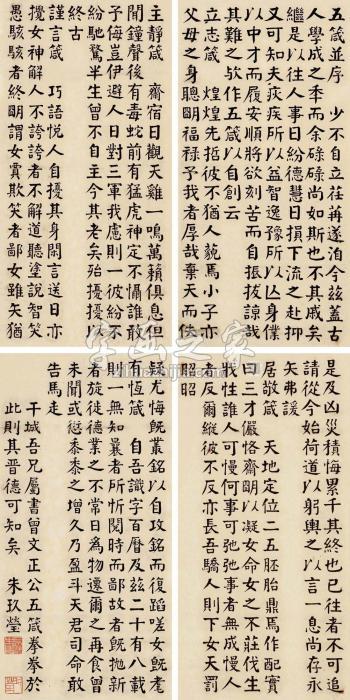 五箴並序　少不自立荏苒遂洎今茲蓋古
人學成之秊而余碌碌尚如斯也不其戚矣
繼是以往人事日紛德慧日損下流之赴抑
又可知夫疢疾所以益智逸豫所以亡身僕
以中才而履安順將欲刻苦而自振拔諒哉
其難之歟作五箴以自創云
立志箴　煌煌先哲彼不猶人藐焉小子亦
父母之身聰明福祿予我者厚哉棄天而佚
是及凶災積累千其終也已不可追
請從今始荷道以躬輿之以言一息尚存永
矢弗諼
居敬箴　天地定位二五胚胎鼎焉作配實
曰三才儼恪齋明以凝女命女之不莊伐生
戕性誰人可慢何事可弛弛事者無成慢人
者反爾縱彼不反亦長吾驕人則下女天罰
昭昭
主靜箴　齋宿日觀天雞一鳴萬籟俱息但
聞鐘聲後有毒蛇前有猛虎神定不懾誰敢
予侮豈伊避人日對三軍我慮則一彼紛不
紛馳騖半生曾不自主今其老矣殆擾擾以
終古
謹言箴　巧語悅人自擾其身閑言送日亦
攪女神解人不誇誇者不解道聽塗說智笑
愚駭駭者終明謂女賈欺笑者鄙女雖矢猶
疑尤悔既叢銘以自攻銘而復蹈嗟女既耄
有恆箴　自吾識字百曆及茲二十有八載
則一無知曩者所忻閱時而鄙故者既拋新
者旋徙德業之不常日為物遷爾之再食曾
未聞或愆黍黍之增久乃盈斗天君司命敢
告馬走
干城吾兄屬書曾文正公五箴拳拳於
此則其晉德可知矣　朱玖瑩
字画之家